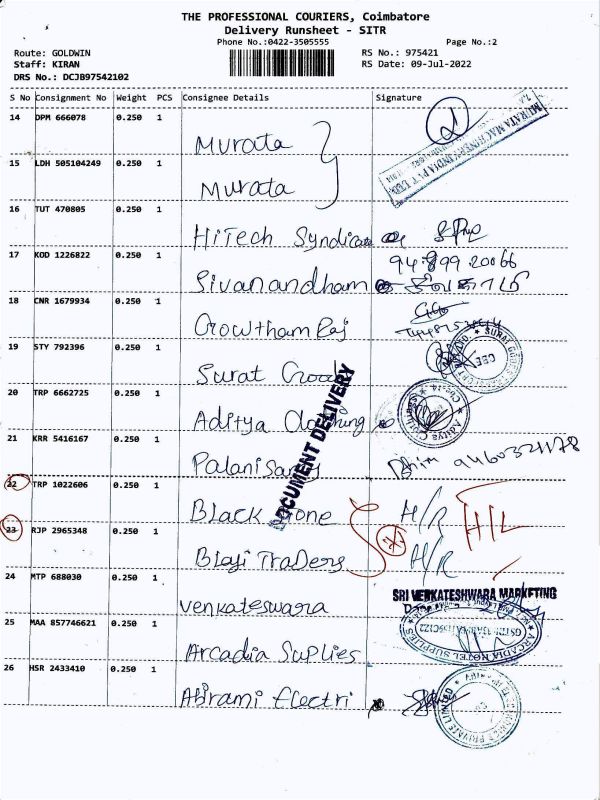 THE PROFESSIONAL COURIERS, Coimbatore
Delivery Runsheet - SITR
Phone No.:0422-3505555 Page No.:2
Route: GOLDWIN RS No.: 975421
Staff: KIRAN RS Date: 09-Jul-2022
DRS No.: DCJB97542102
S No Consignment No Weight PCS Consignee Details Signature
14 DPM 666078 0.250 1 Murata
MURATA MACHINERY INDIA PVT. LTD.
15 LDH 505104249 0.250 1 Murata
16 TUT 470805 0.250 1 HiTech Syndicate
17 KOD 1226822 0.250 1 Sivanandham 94899 20066
18 CNR 1679934 0.250 1 GowthamRaj
19 STY 792396 0.250 1 Surat Goods
20 TRP 6662725 0.250 1 Aditya Clothing
21 KRR 5416167 0.250 1 Palanisamy 9460321178
DOCUMENT DELIVERY
22 TRP 1022606 0.250 1 Black Stone H/R H/L
23 RJP 2965348 0.250 1 Blaji Traders H/R
24 MTP 688030 0.250 1 Venkateswara
SRI VENKATESHWARA MARKETING
25 MAA 857746621 0.250 1 Arcadia Suplies
ARCADIA HOTEL SUPPLIES
26 HSR 2433410 0.250 1 Abirami Electri
PRIVATE LIMITED